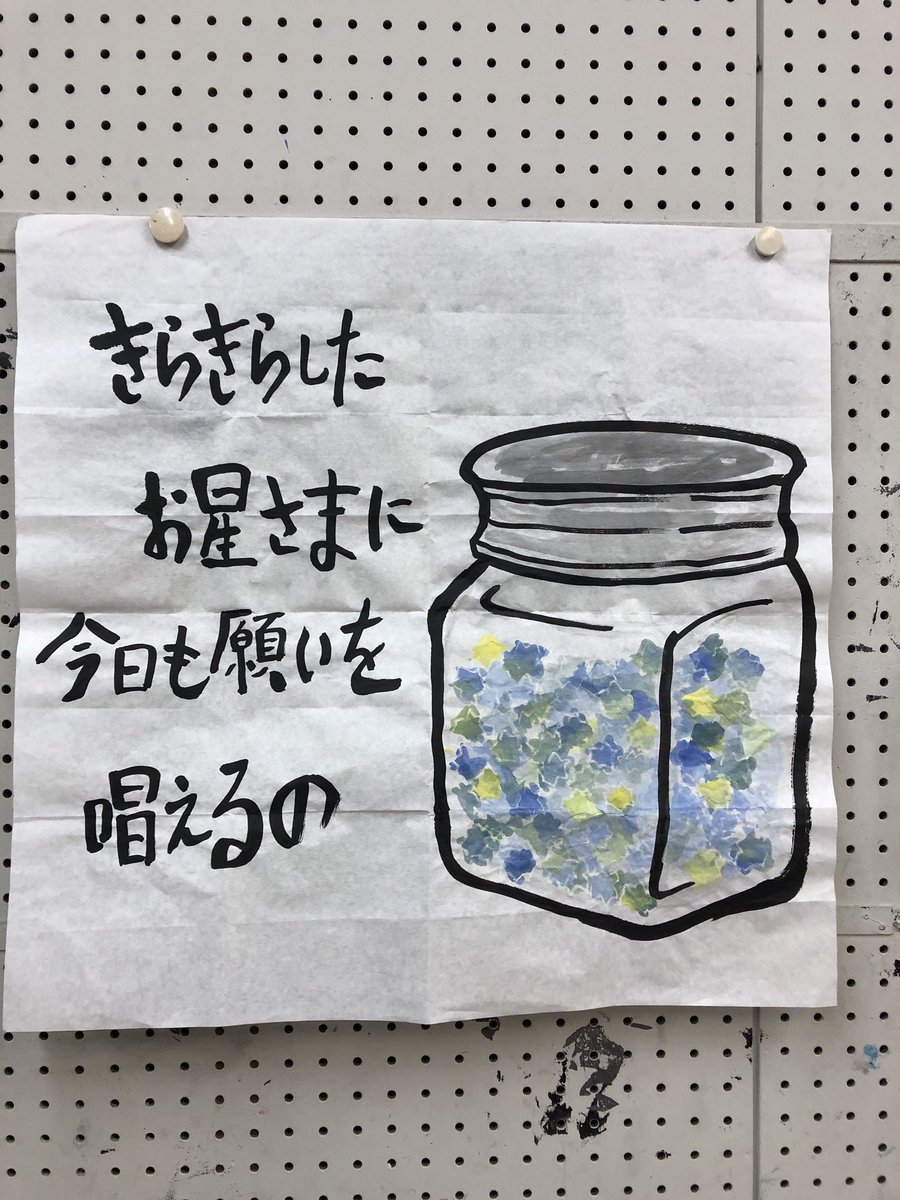 きらきらした
お星さまに
今日も願いを
唱えるの